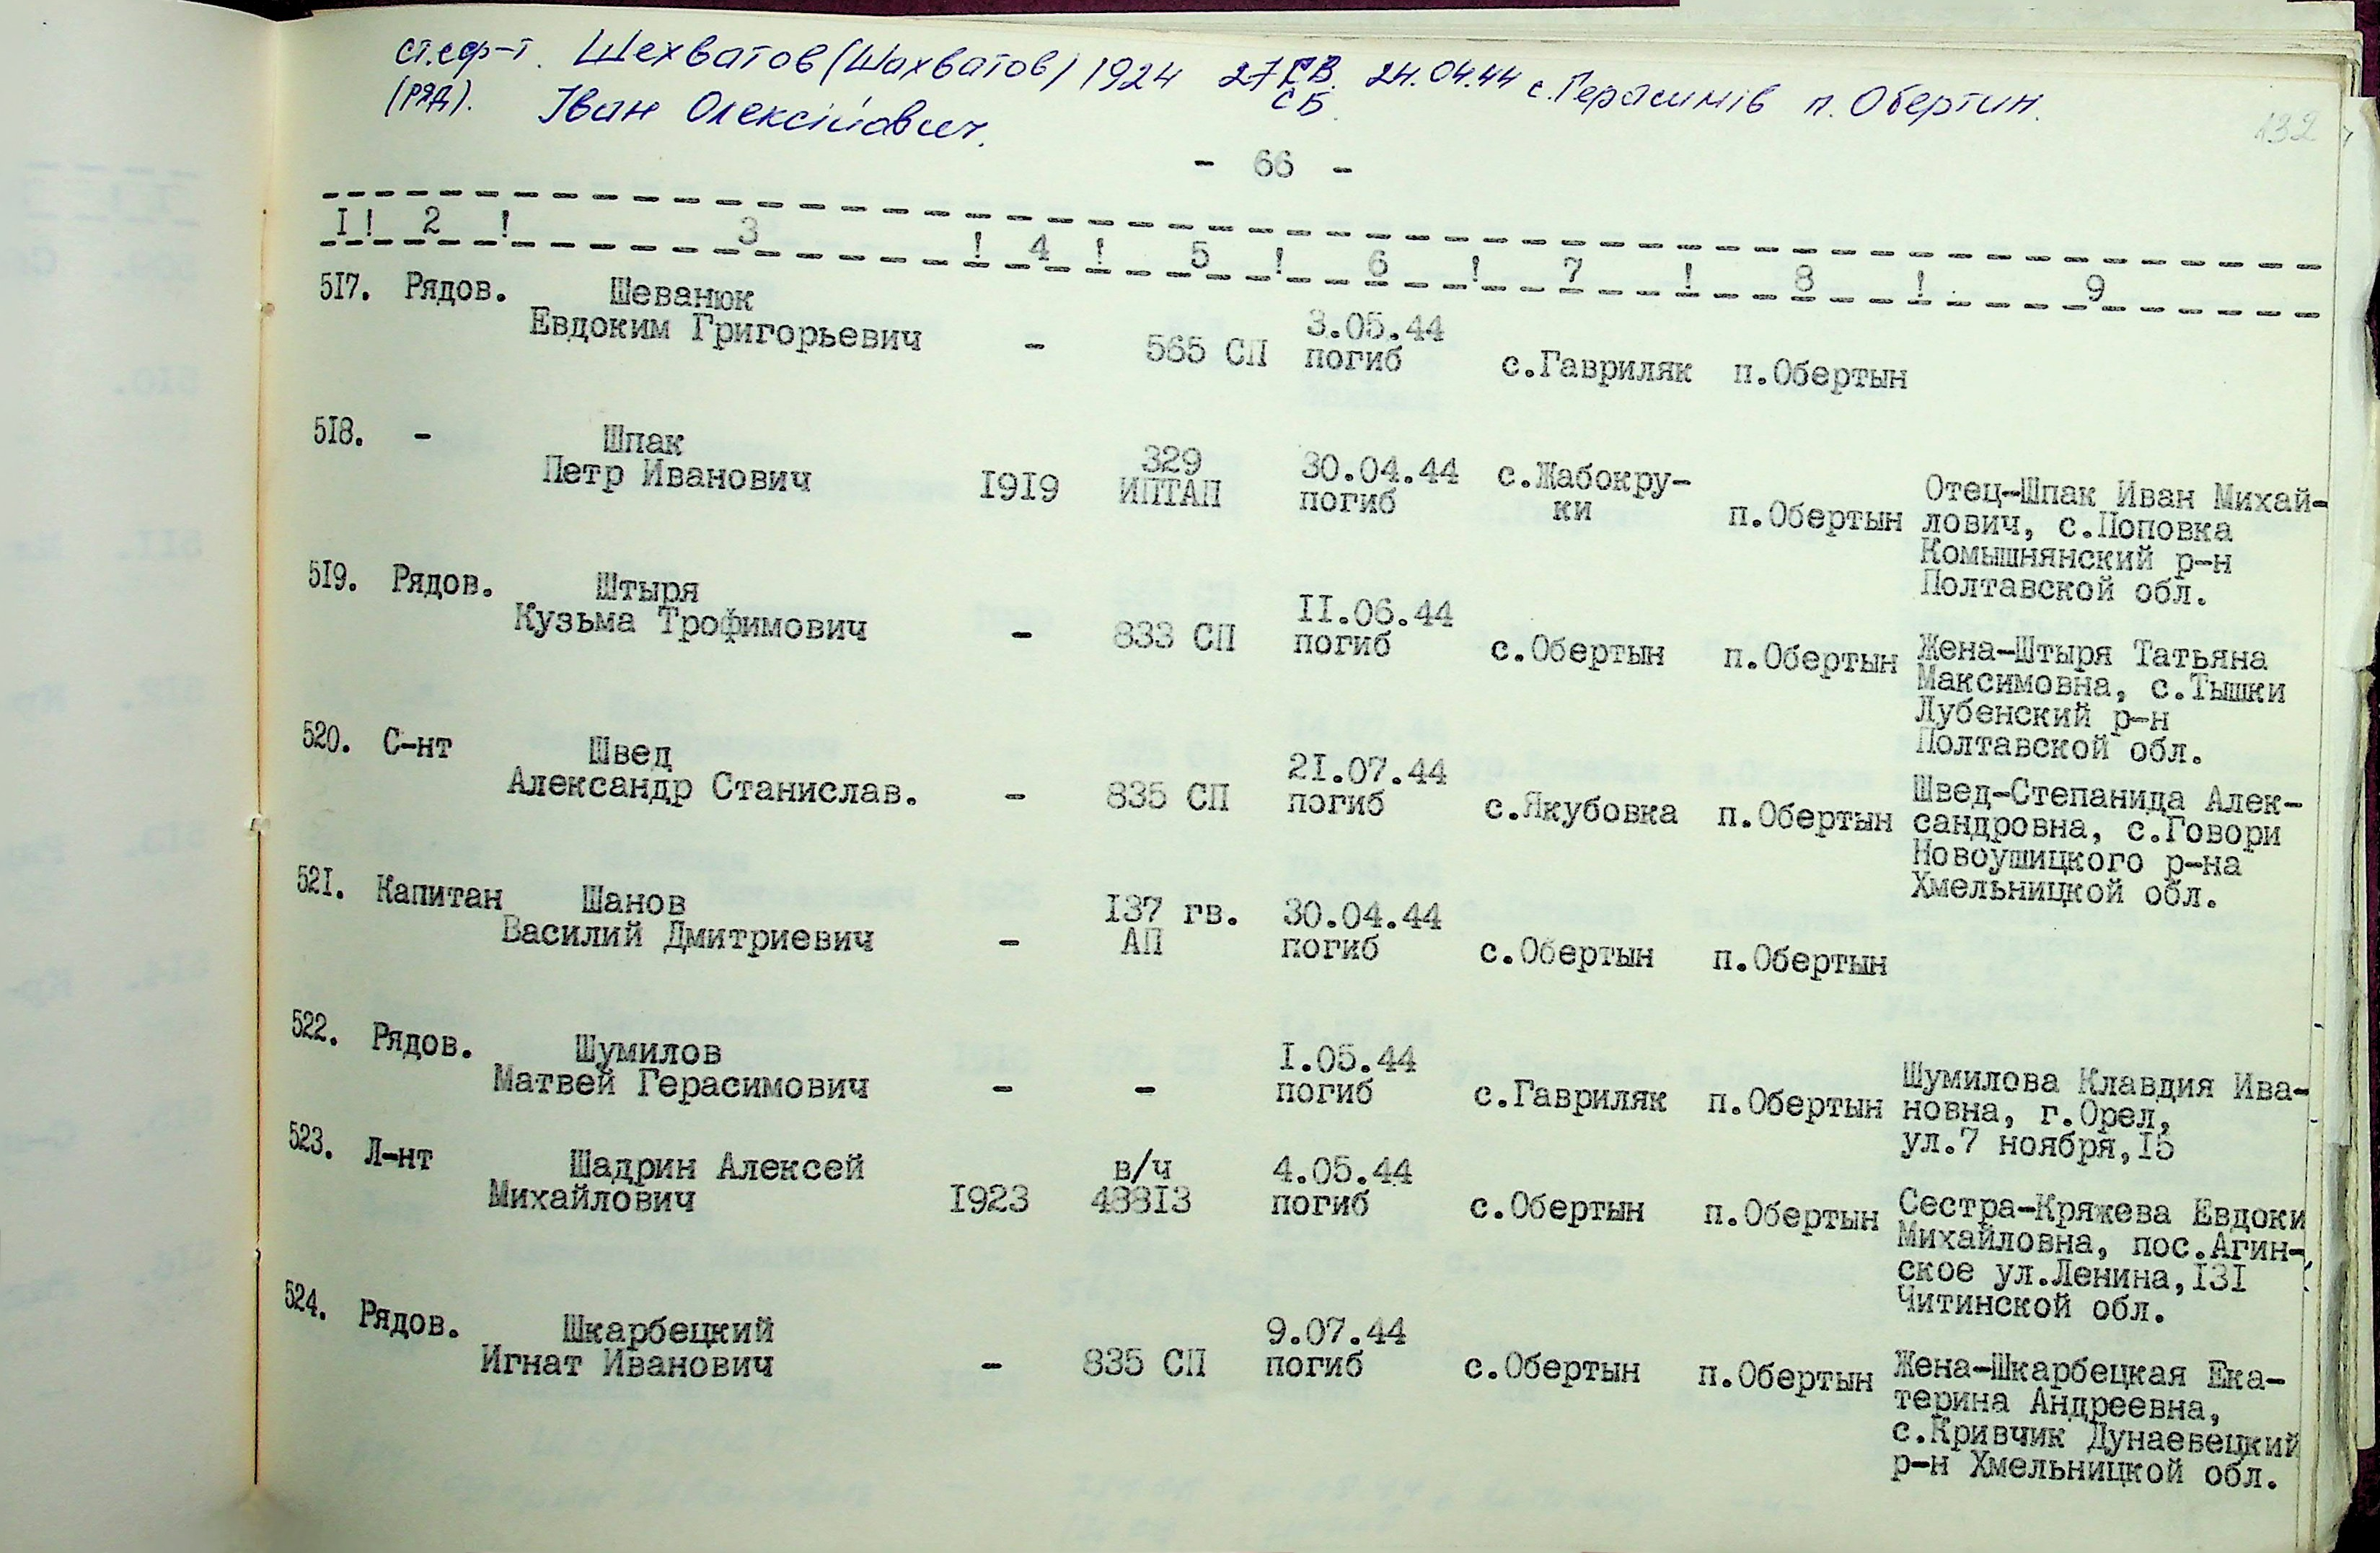 ст.єф-т. Шехватов (Шахватов) 1924 27 ГВ. 24.04.44 с.Герасимів п. Обертин.
(ряд). Іван Олексійович. СБ
132
- 66 -
I! 2 ! 3 ! 4 ! 5 ! 6 ! 7 ! 8 ! 9
517. Рядов. Шеванюк
Евдоким Григорьевич - 565 СП 3.05.44
погиб с.Гавриляк п.Обертын
518. - Шпак
Петр Иванович 1919 329
ИПТАП 30.04.44
погиб с.Жабокру-
ки п.Обертын Отец-Шпак Иван Михай-
лович, с.Поповка
Комышнянский р-н
Полтавской обл.
519. Рядов. Штыря
Кузьма Трофимович - 833 СП II.06.44
погиб с.Обертын п.Обертын Жена-Штыря Татьяна
Максимовна, с.Тышки
Лубенский р-н
Полтавской обл.
520. С-нт Швед
Александр Станислав. - 835 СП 2I.07.44
погиб с.Якубовка п.Обертын Швед-Степанида Алек-
сандровна, с.Говори
Новоушицкого р-на
Хмельницкой обл.
52I. Капитан Шанов
Василий Дмитриевич - I37 гв.
АП 30.04.44
погиб с.Обертын п.Обертын
522. Рядов. Шумилов
Матвей Герасимович - - I.05.44
погиб с.Гавриляк п.Обертын Шумилова Клавдия Ива-
новна, г.Орел,
ул.7 ноября,I5
523. Л-нт Шадрин Алексей
Михайлович I923 в/ч
488I3 4.05.44
погиб с.Обертын п.Обертын Сестра-Кряжева Евдоки
Михайловна, пос.Агин-
ское ул.Ленина,I3I
Читинской обл.
524. Рядов. Шкарбецкий
Игнат Иванович - 835 СП 9.07.44
погиб с.Обертын п.Обертын Жена-Шкарбецкая Ека-
терина Андреевна,
с.Кривчик Дунаевецкий
р-н Хмельницкой обл.